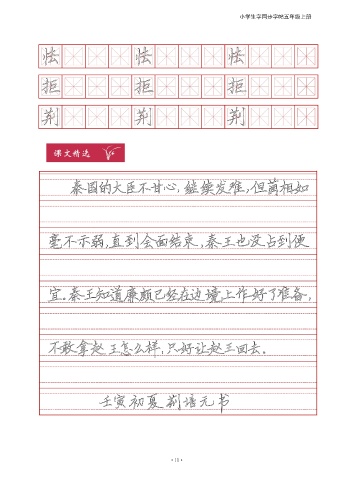 小学生字同步字帖五年级上册
怯 怯 怯
拒 拒 拒
荆 荆 荆
课文精选
秦国的大臣不甘心,继续发难,但蔺相如
毫不示弱,直到会面结束,秦王也没占到便
宜。秦王知道廉颇已经在边境上作好了准备,
不敢拿赵王怎么样,只好让赵王回去。
壬寅初夏荆培元书